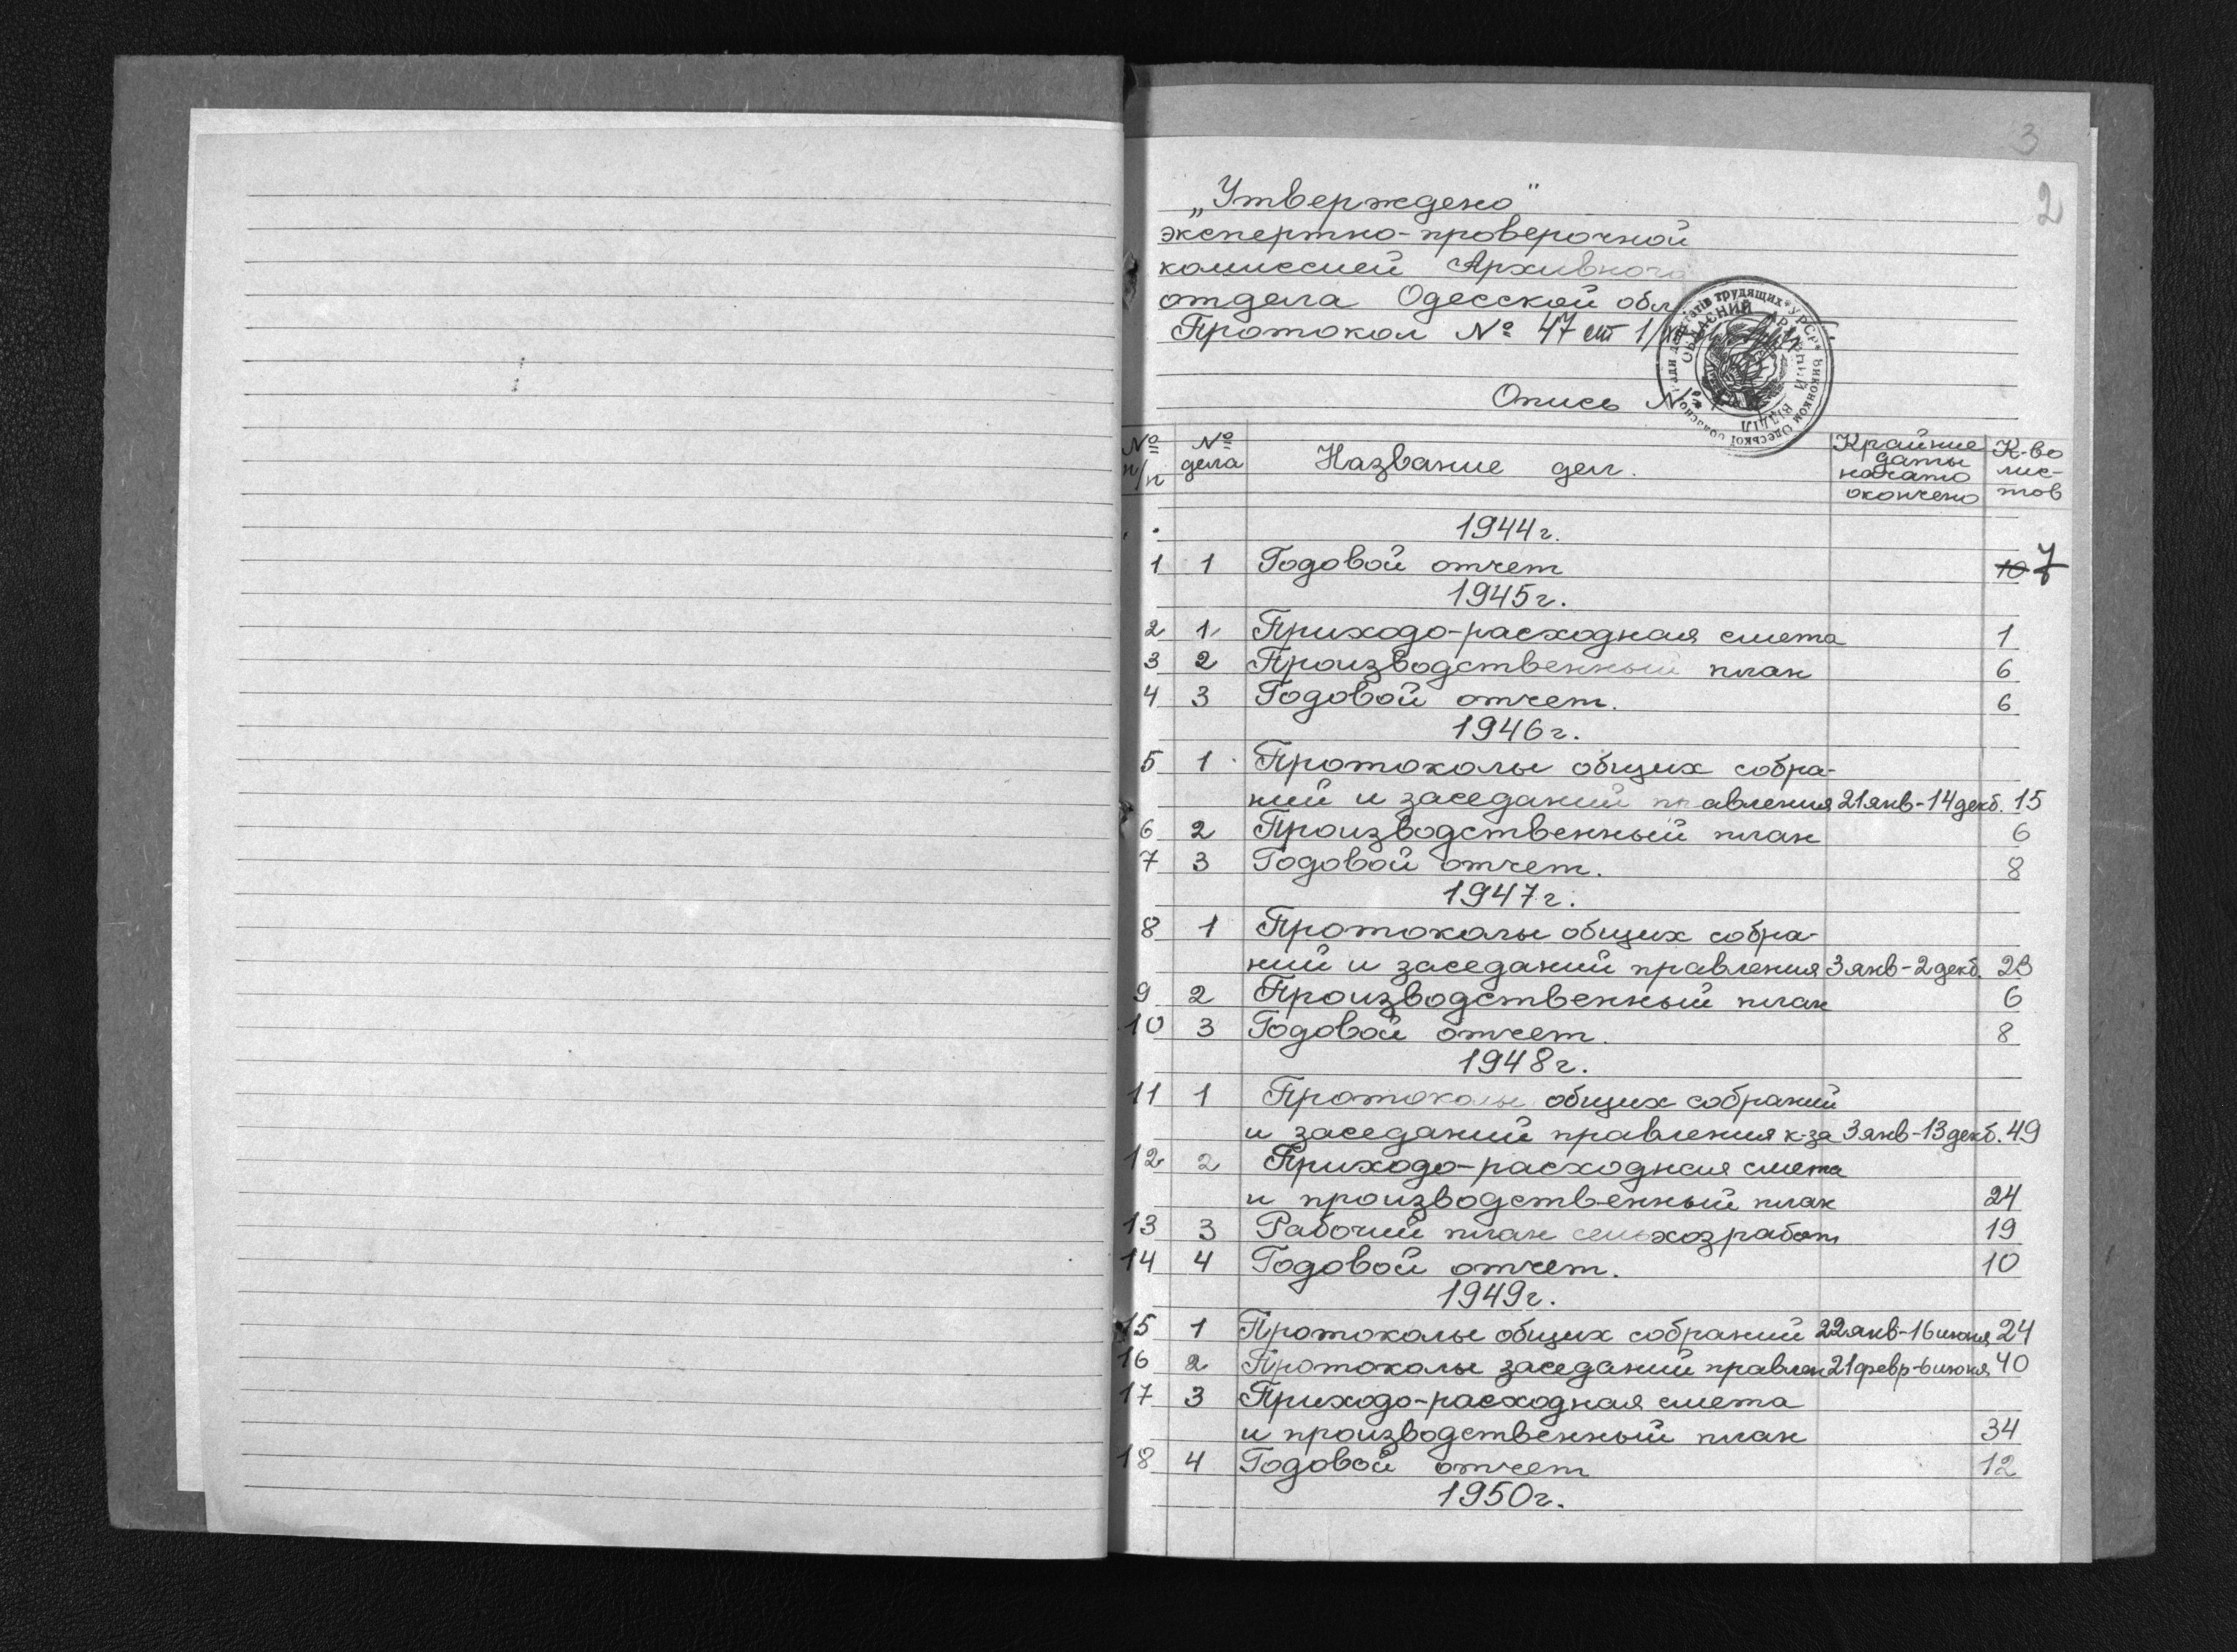 3
2
„Утверждено"
экспертно-проверочной
комиссией Архивного
отдела Одесской обл
Протокол № 47 от 1/
Опись №
ОБЛАСНИЙ АРХІВНИЙ ВІДДІЛ
депутатів трудящих * УРСР * Виконком Одеської обласної Ради
№ п/п № дела Название дел. Крайние даты начато окончено К-во лис-тов
1944г.
1 1 Годовой отчет 10 7
1945г.
2 1 Приходо-расходная смета 1
3 2 Производственный план 6
4 3 Годовой отчет. 6
1946г.
5 1 Протоколы общих собра-
ний и заседаний правления 21 янв-14 декб. 15
6 2 Производственный план 6
7 3 Годовой отчет. 8
1947г.
8 1 Протоколы общих собра-
ний и заседаний правления 3 янв-2 декб. 23
9 2 Производственный план 6
10 3 Годовой отчет. 8
1948г.
11 1 Протоколы общих собраний
и заседаний правления к-за 3 янв-13 декб. 49
12 2 Приходо-расходная смета
и производственный план 24
13 3 Рабочий план сельхозработ 19
14 4 Годовой отчет. 10
1949г.
15 1 Протоколы общих собраний 22 янв-16 июня 24
16 2 Протоколы заседаний правлен 21 февр-6 июня 40
17 3 Приходо-расходная смета
и производственный план 34
18 4 Годовой отчет 12
1950г.